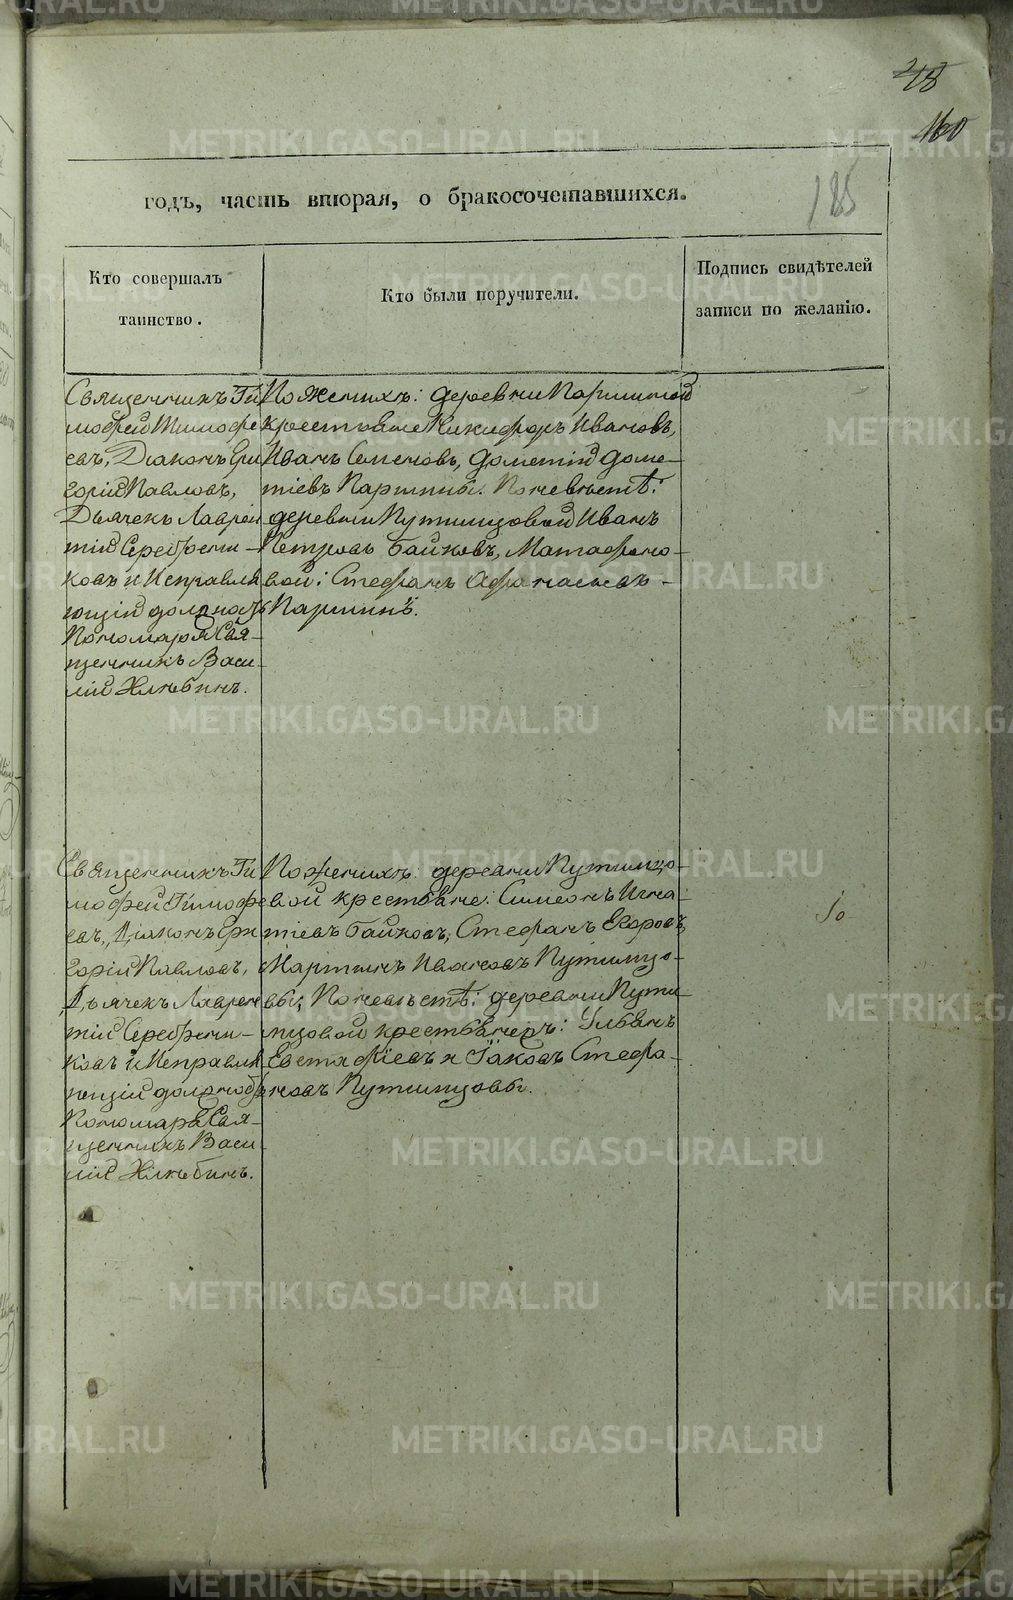 218
160
185
годъ, часть вторая, о бракосочетавшихся.
Кто совершалъ
таинство.
Кто были поручители.
Подпись свидѣтелей
записи по желанію.
Священникъ Ти
мофей Тимофе
евъ, Діаконъ Гри
горій Павловъ,
Дьячекъ Лаврен
тій Серебрени-
ковъ и Исправля
ющій должность
Пономаря Свя-
щенникъ Васи-
лій Хлѣбинъ.
По женихѣ: деревни Паршиной
крестьяне Никифоръ Ивановъ,
Иванъ Семеновъ, Дометій Доме-
тіевъ Паршины. По невѣстѣ:
деревни Путимцовой Иванъ
Петровъ Байновъ, Матафоно-
вой: Стефанъ Афанасьевъ
Паршинъ.
Священникъ Ти
мофей Тимофе
евъ, Діаконъ Гри
горій Павловъ,
Дьячекъ Лаврен
тій Серебрени-
ковъ и Исправля
ющій должность
Пономаря Свя-
щенникъ Васи-
лій Хлѣбинъ.
По женихѣ: деревни Путимцо-
вой крестьяне: Симеонъ Игна-
тіевъ Байновъ, Стефанъ Егоровъ,
Мартинъ Ивановъ Путимцо-
вы; По невѣстѣ: деревни Пути-
мцовой крестьянеръ: Ульянъ
Евстафіевъ и Іаковъ Стефа-
новъ Путимцовы.
METRIKI.GASO-URAL.RU